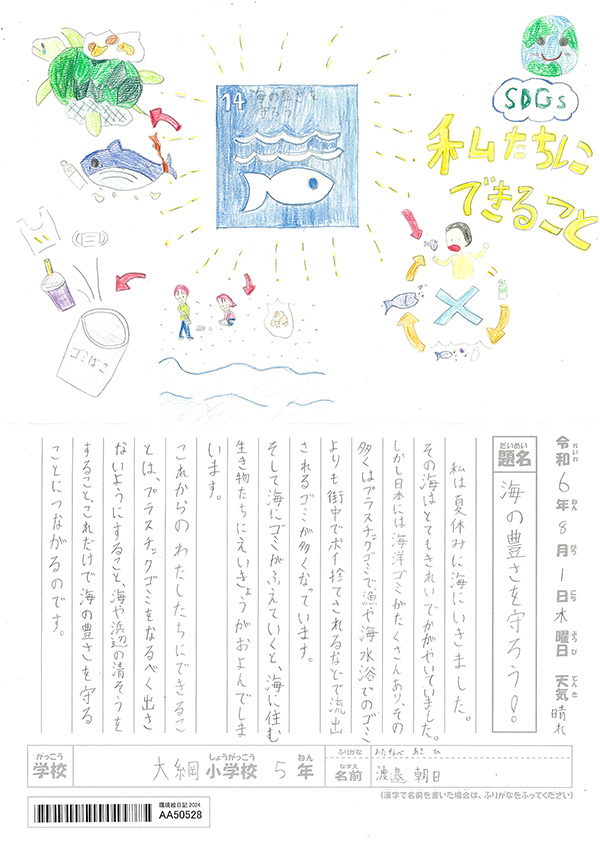 SDGs
私たちに
できること
14 海の豊さを
守ろう
ゴミばこ
令和6年8月1日木曜日 天気 晴れ
れいわ ねん がつ にち ようび てんき
だいめい
題名
海の豊さを守ろう!
私は夏休みに海にいきました。
その海はとてもきれいでかがやいていました。
しかし日本には海洋ゴミがたくさんあり、その
多くはプラスチックゴミで漁や海水浴でのゴミ
よりも街中でポイ捨てされるなどで流出
されるゴミが多くなっています。
そして海にゴミがふえていくと、海に住む
生き物たちにえいきょうがおよんでしま
います。
これからのわたしたちにできるこ
とは、プラスチックゴミをなるべく出さ
ないようにすること、海や浜辺の清そうを
すること、これだけで海の豊さを守る
ことにつながるのです。
がっこう
学校
大綱 小学校 5年
しょうがっこう ねん
ふりがな わたなべ あさひ
なまえ
名前 渡邉 朝日
(漢字で名前を書いた場合は、ふりがなをふってください)
環境絵日記 2024
AA50528